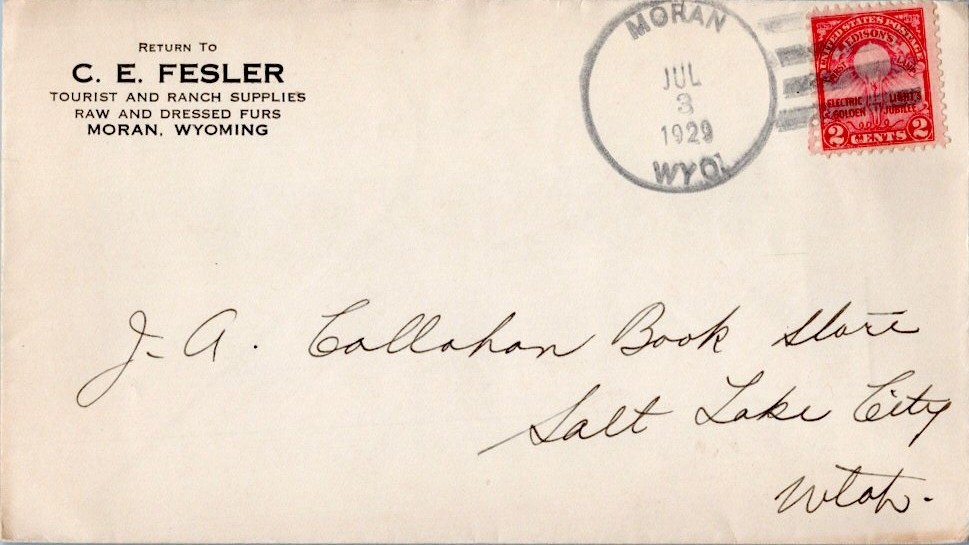 RETURN TO
C. E. FESLER
TOURIST AND RANCH SUPPLIES
RAW AND DRESSED FURS
MORAN, WYOMING
MORAN
JUL
3
1929
WYO.
UNITED STATES POSTAGE
EDISON'S
FIRST LAMP
ELECTRIC LIGHT'S
GOLDEN JUBILEE
2 CENTS 2
J. A. Callahan Book Store
Salt Lake City
Utah.